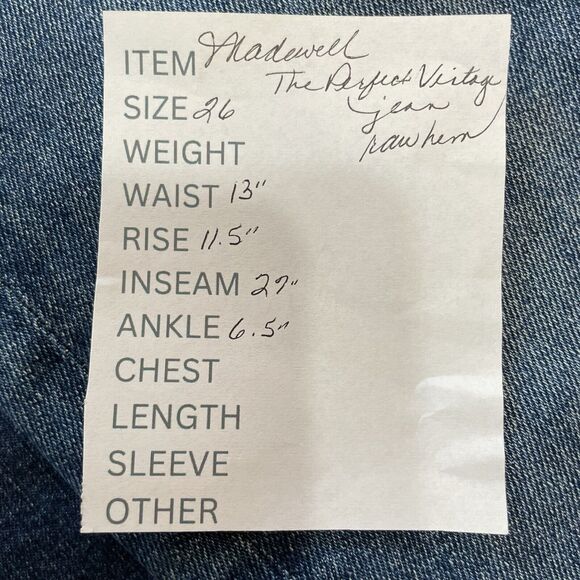 ITEM Madewell
The Perfect Vintage
jean
raw hem
SIZE 26
WEIGHT
WAIST 13"
RISE 11.5"
INSEAM 27"
ANKLE 6.5"
CHEST
LENGTH
SLEEVE
OTHER